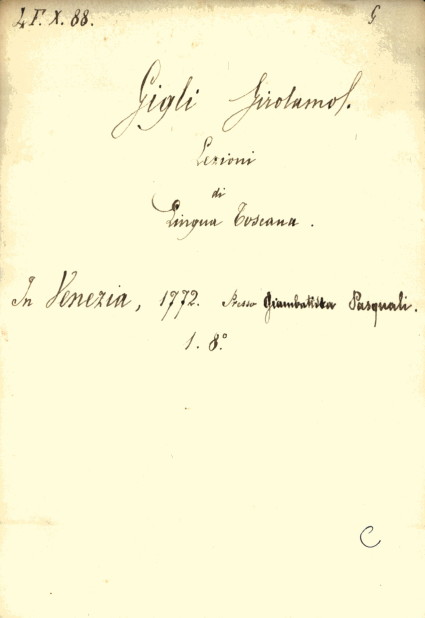 4 F. X. 88. G
Gigli Girolamo.
Lezioni
di
Lingua Toscana.
In Venezia, 1772. Presso Giambattista Pasquali.
1. 8°
C